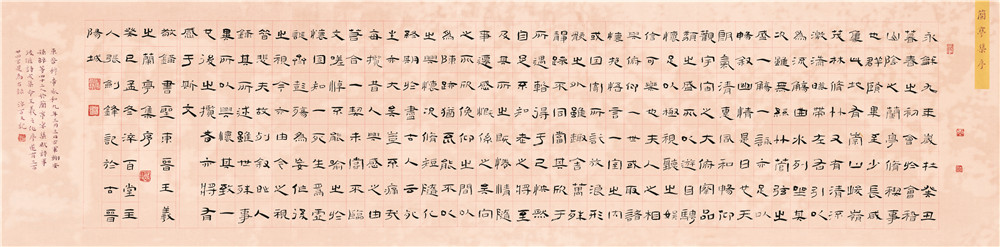 蘭亭集序
永和九年歲在癸丑
暮春之初會於會稽
山陰之蘭亭脩禊事
也群賢畢至少長咸
集此地有崇山峻嶺
茂林脩竹又有清流
激湍映帶左右引以
為流觴曲水列坐其
次雖無絲竹管弦之
盛一觴一詠亦足以
暢敘幽情是日也天
朗氣清惠風和暢仰
觀宇宙之大俯察品
類之盛所以遊目騁
懷足以極視聽之娛
信可樂也夫人之相
與俯仰一世或取諸
懷抱悟言一室之內
或因寄所託放浪形
骸之外雖趣舍萬殊
靜躁不同當其欣於
所遇暫得于己快然
自足不知老之將至
及其所之既倦情隨
事遷感慨係之矣向
之所欣俛仰之間以
為陳跡猶不能不以
之興懷況脩短隨化
終期於盡古人云死
生亦大矣豈不痛哉
每攬昔人興感之由
若合一契未嘗不臨
文嗟悼不能喻之於
懷固知一死生為虛
誕齊彭殤為妄作後
之視今亦由今之視
昔悲夫故列敘時人
錄其所述雖世殊事
異所以興懷其致一
也後之攬者亦將有
感于斯文
敬錄書聖東晉王羲
之蘭亭集序
癸巳孟冬淬百堂主
人張劍鋒記於古晉
陽城